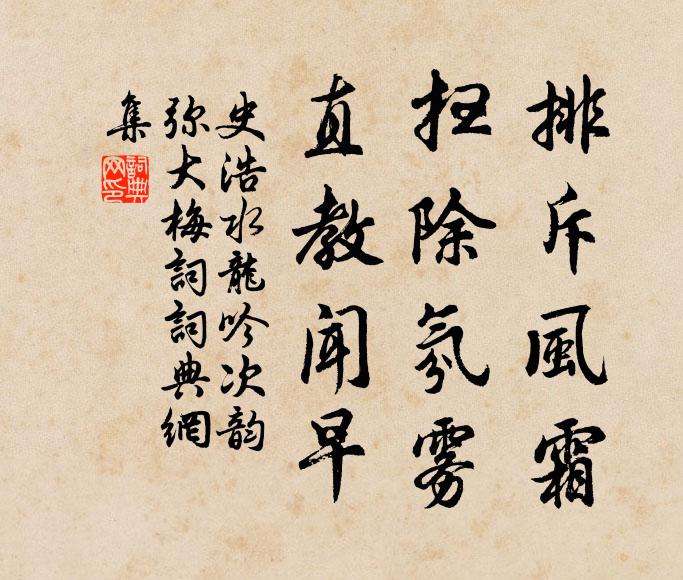 排斥風霜
扫除氛雾
直教闻早
史浩水龍吟次韵
弥大梅詞詞典網
集
詞典网印